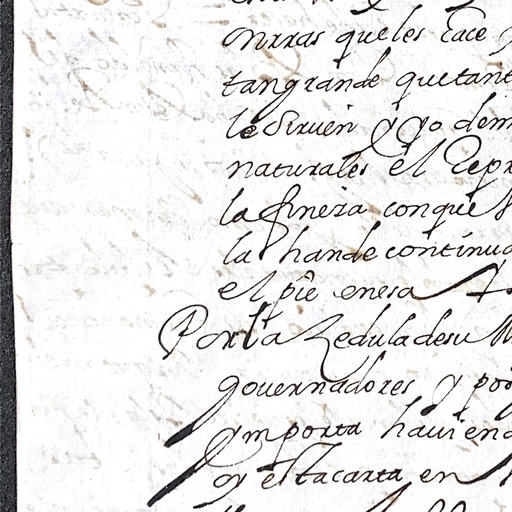 onrras que les hace
tangrande que tani
le siruen y yo dem
naturales el Repr
la fineza con que
la hande continua
el pĩe enesa
Por la Zedula desu M
gouernadores y por
ymporta hauiend
oy esta carta en